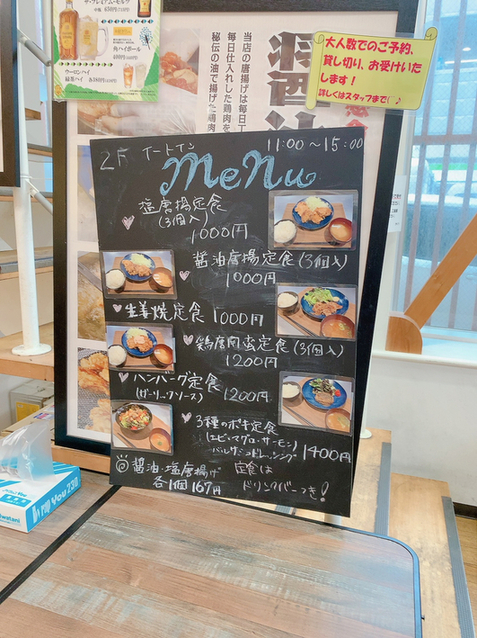 ザ・プレミアム・モルツ
各ハイボール
ウーロンハイ
緑茶ハイ
当店の唐揚は毎日丁
毎日仕入れした鶏肉を
秘伝の油で揚げた鶏肉
大人数でのご予約、
貸し切り、お受けいた
します!
詳しくはスタッフまで(♪
2F イートイン 11:00~15:00
Menu
塩唐揚定食
(3個入)
1000円
醤油唐揚定食(3個入)
1000円
生姜焼定食 1000円
鶏唐南蛮定食(3個入)
1200円
ハンバーグ定食
(ガーリックソース) 1200円
3種のポキ定食
(エビ・マグロ・サーモン)
バルサミコドレッシング 1400円
醤油・塩唐揚げ
各1個167円
定食は
ドリンクバーつき!
Iwatani